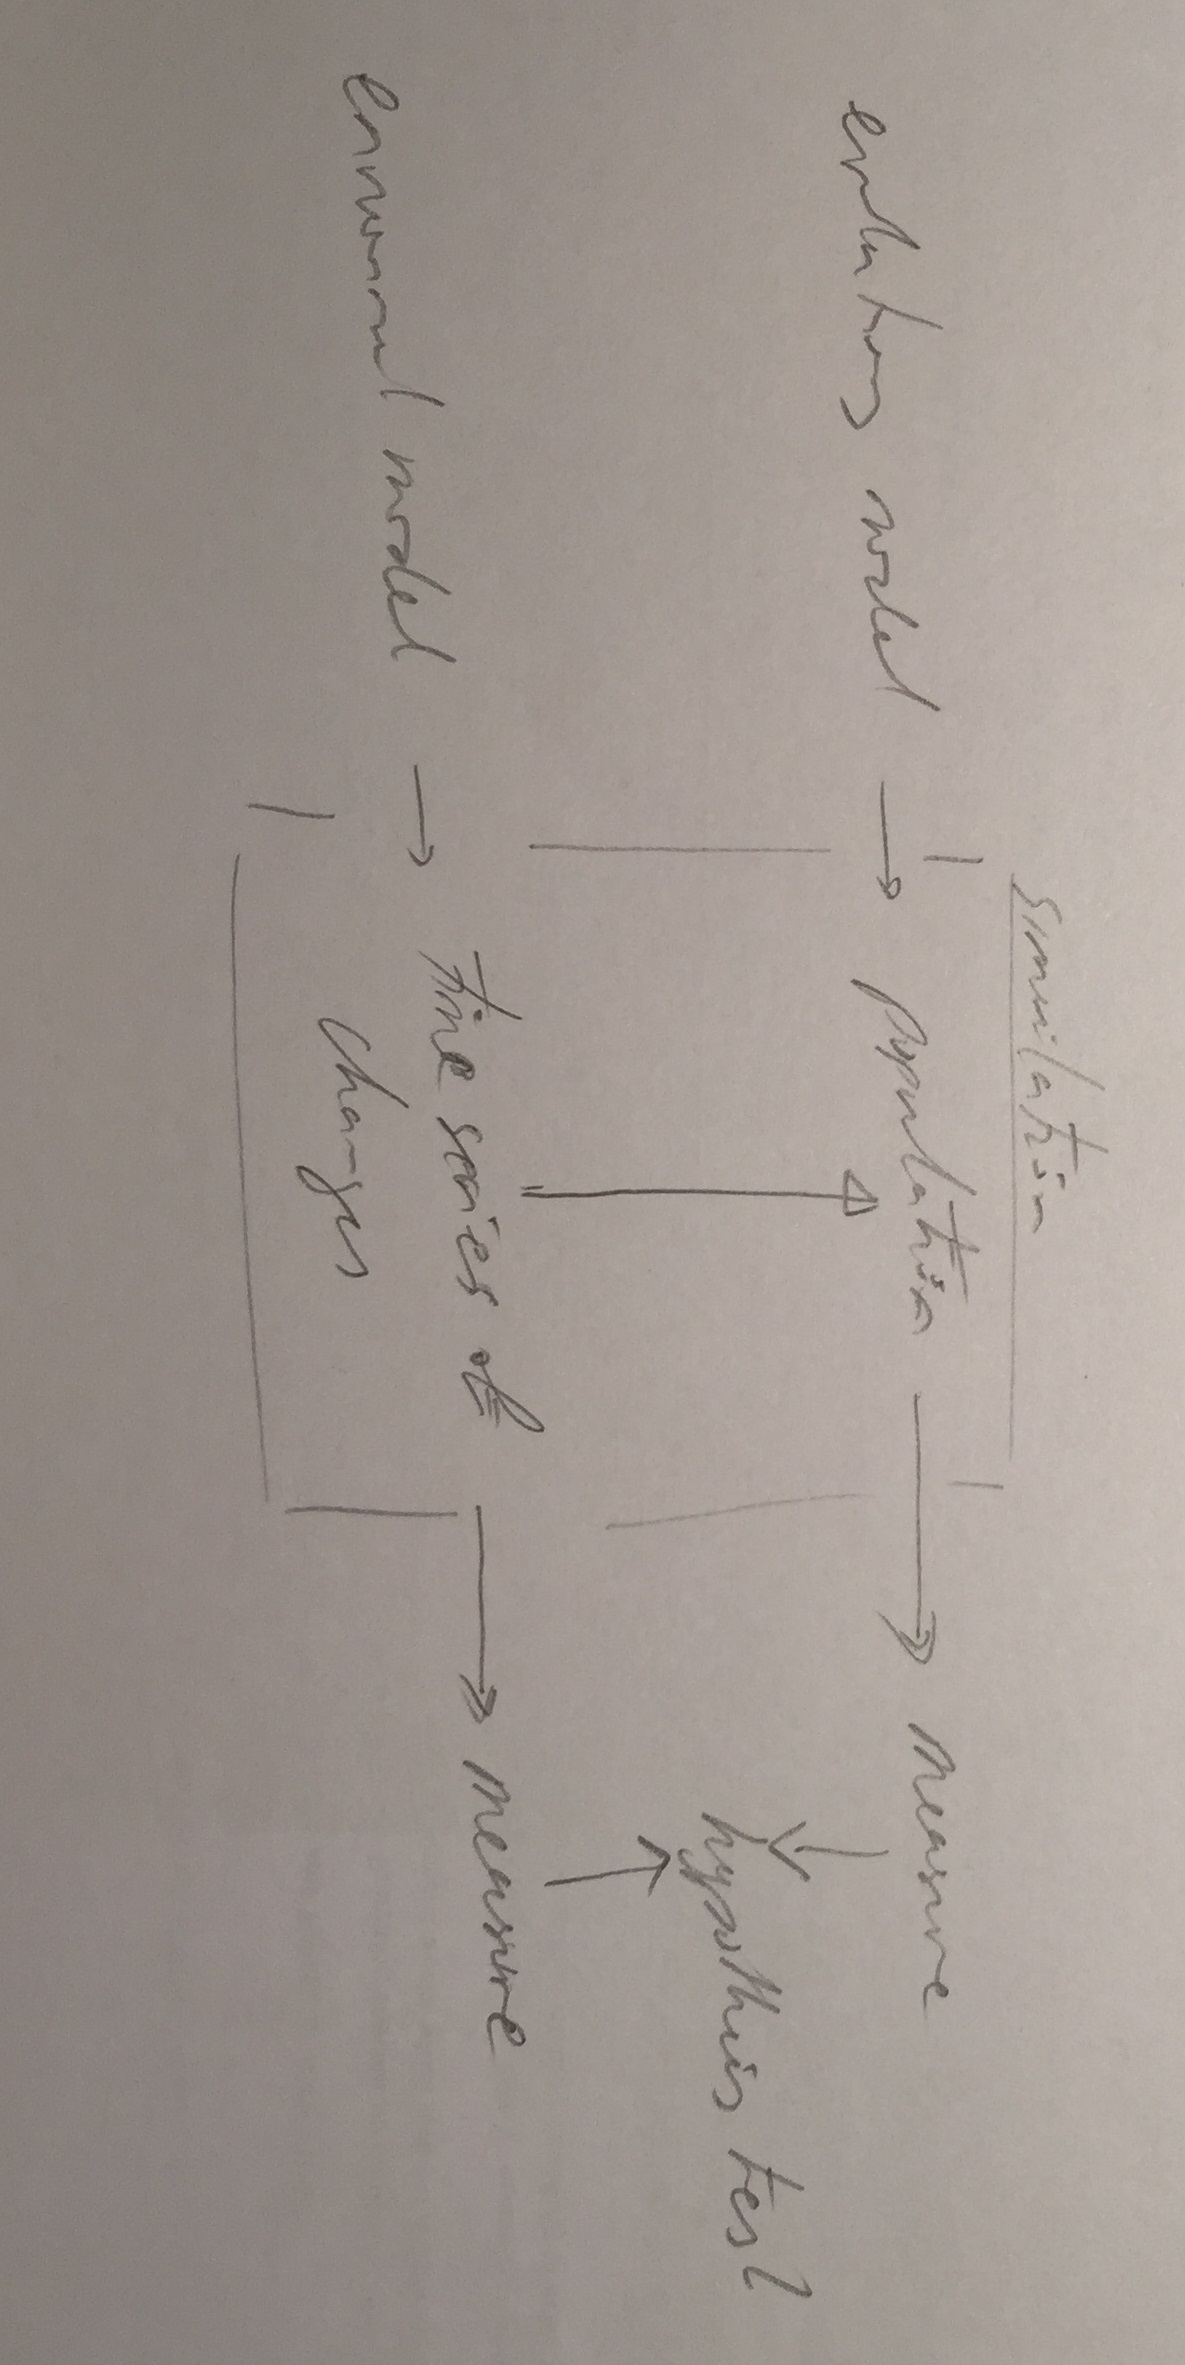 simulation
evolutionary model → population → measure
hypothesis test
environmental model → time series of → measure
changes